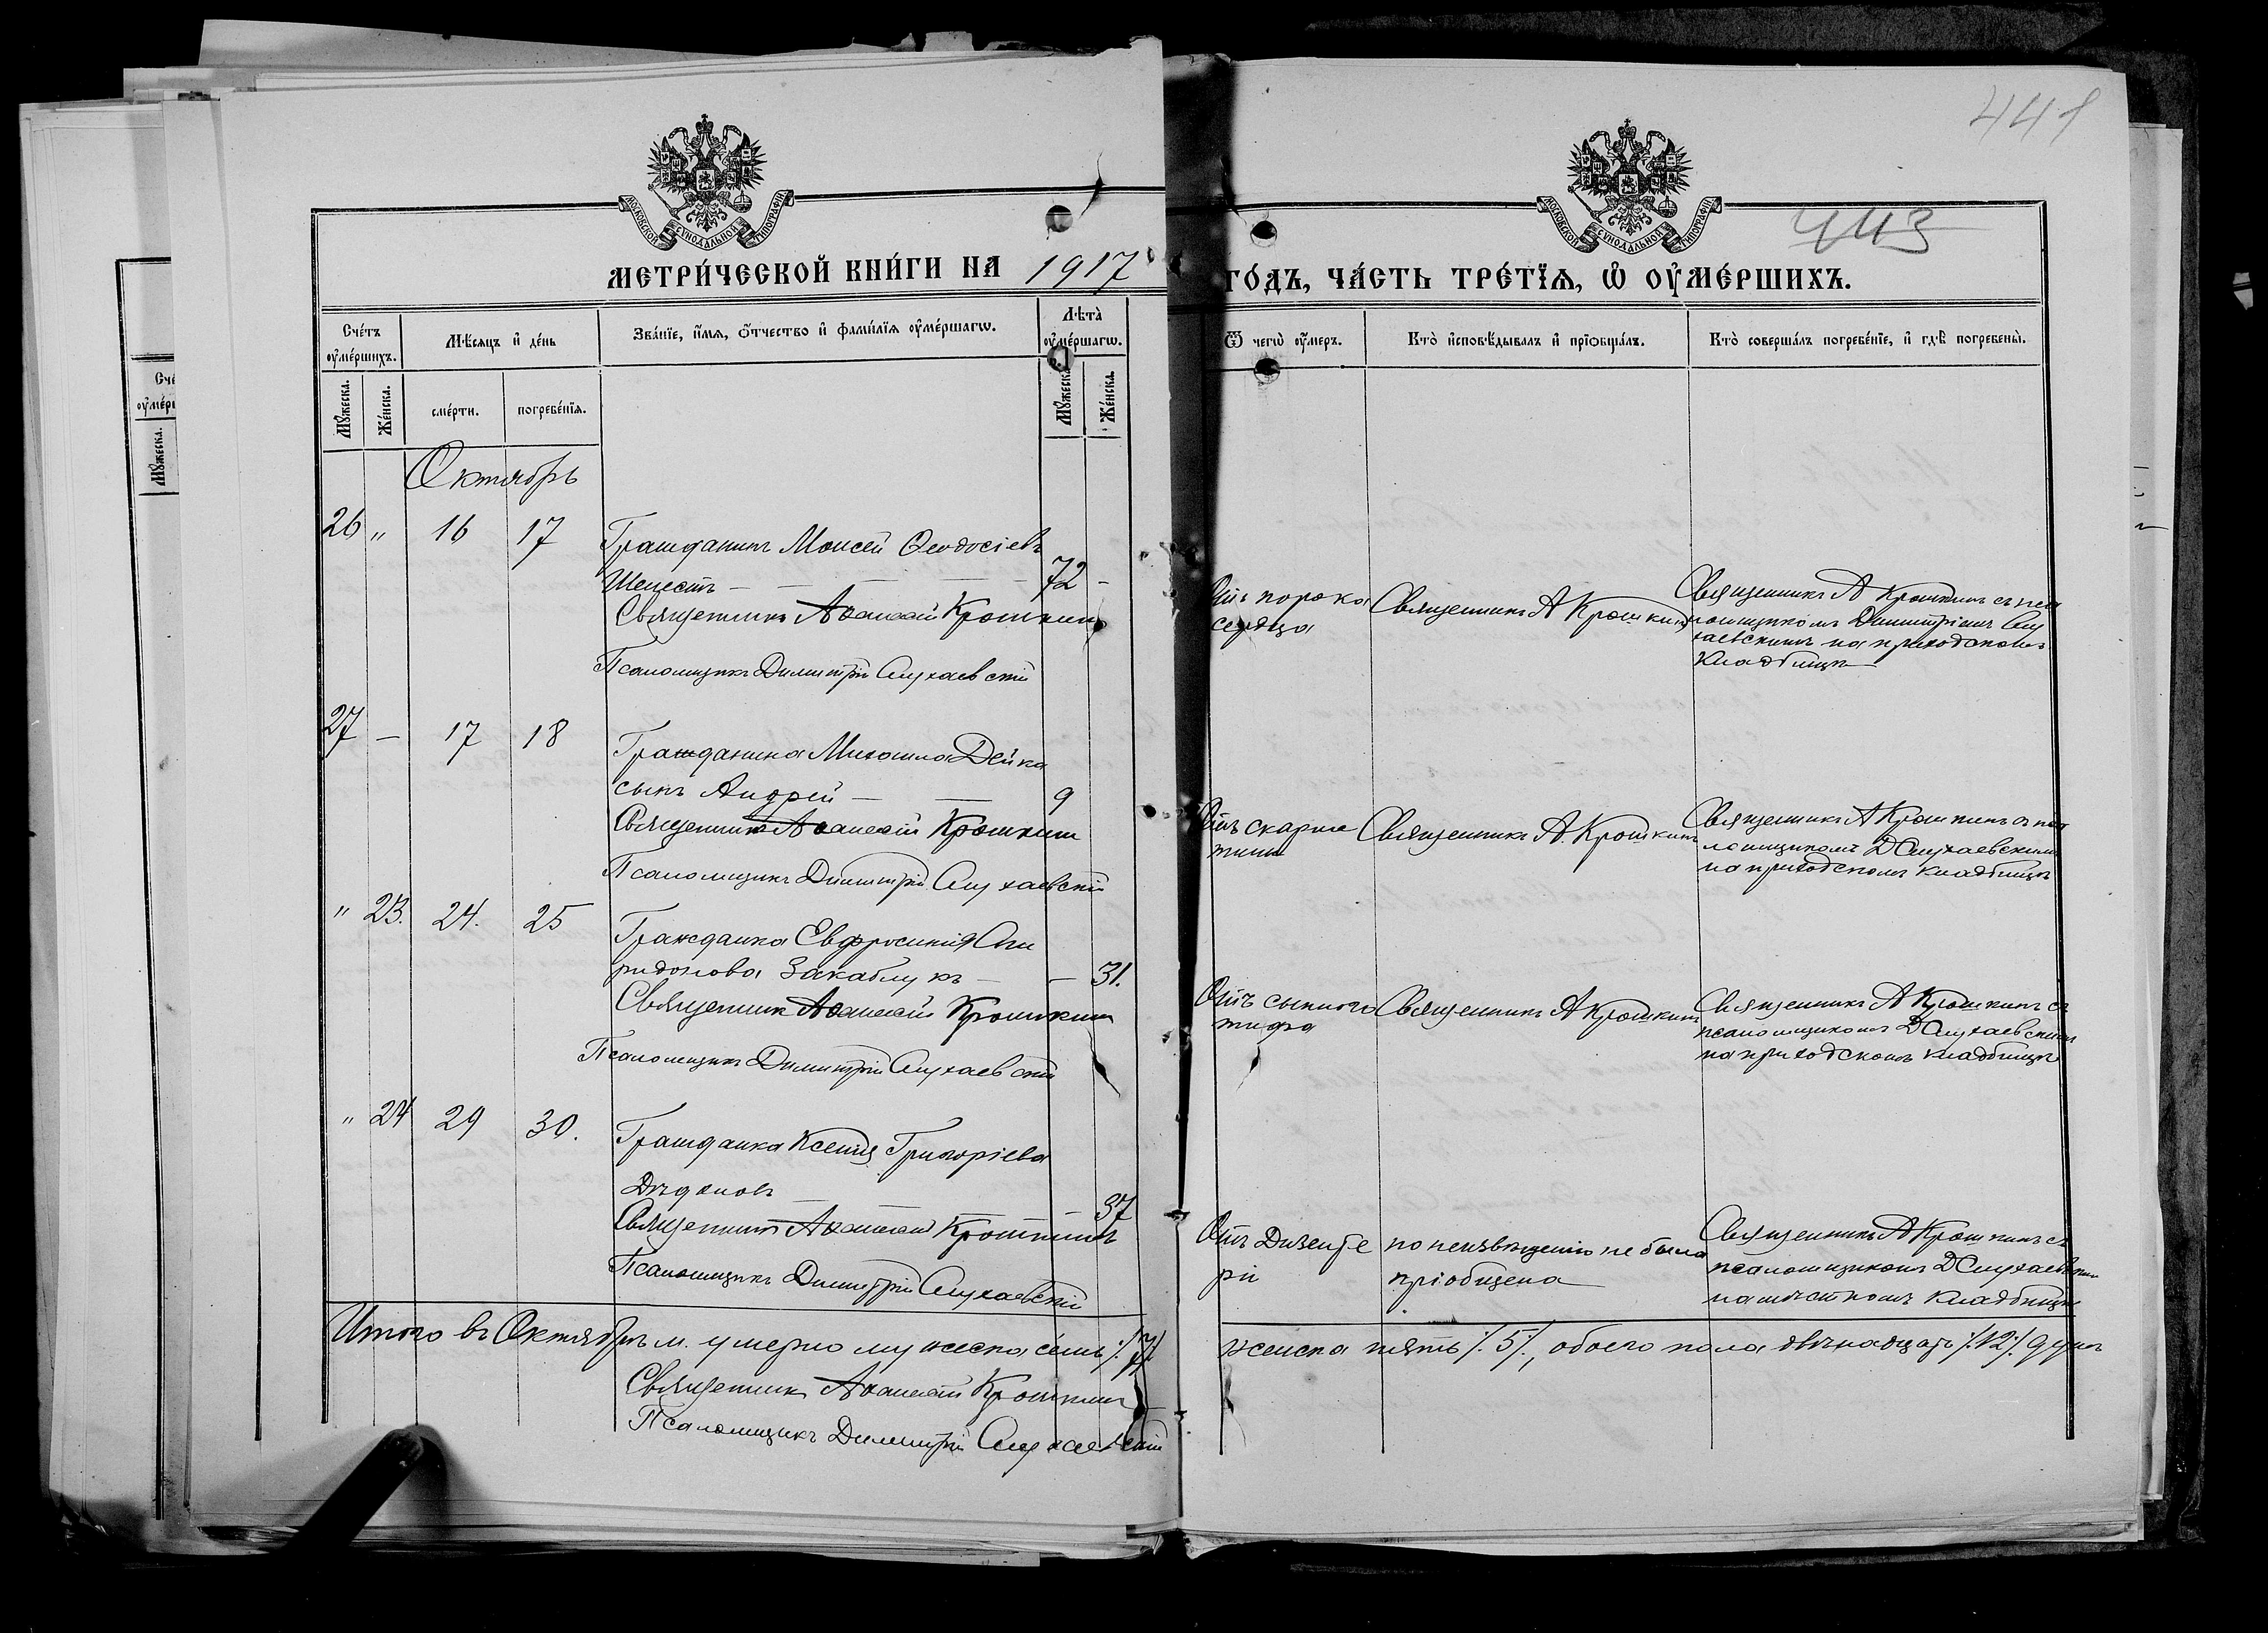 441
443
МОСКОВСКОЙ СѴНОДАЛЬНОЙ ТИПОГРАФІИ
МОСКОВСКОЙ СѴНОДАЛЬНОЙ ТИПОГРАФІИ
МЕТРИ́ЧЕСКОЙ КНИ́ГИ НА 1917
ГО́ДЪ, ЧА́СТЬ ТРЕ́ТЇѦ, Ѡ҆ ОУ҆МЕ́РШИХЪ.
Сче́тъ оу҆ме́ршихъ.
Мѣ́сяцъ и҆ де́нь
Зва́нїе, и҆́мѧ, ѻ҆́тчество и҆ фами́лїѧ оу҆ме́ршагѡ.
Лѣта̀ оу҆ме́ршагѡ.
Ѿ чегѡ̀ оу҆́меръ.
Кто̀ и҆сповѣ́дывалъ и҆ прїѡбща́лъ.
Кто̀ соверша́лъ погребе́нїе, и҆ гдѣ̀ погребены̀.
Мꙋ́жеска.
Же́нска.
сме́рти.
погребе́нїѧ.
Мꙋ́жеска.
Же́нска.
Октябрь
26 " 16 17 Гражданинъ Моисей Ѳеодосіевъ
Шелестъ — — — — 72 -
Священникъ Аѳанасій Крошкинъ
Псаломщикъ Димитрій Слухаевскій
Отъ порока
сердца
Священникъ А Крошкинъ
Священникъ А Крошкинъ съ пса
ломщикомъ Димитріемъ Слу
хаевскимъ на приходскомъ
кладбищѣ
27 — 17 18 Гражданина Михаила Дейка
сынъ Андрей — — 9
Священникъ Аѳанасій Крошкинъ
Псаломщикъ Димитрій Слухаевскій
Отъ скарла
тины
Священникъ А. Крошкинъ
Священникъ А Крошкинъ съ пса
ломщикомъ Д Слухаевскимъ
на приходскомъ кладбищѣ
" 23. 24. 25 Гражданка Евфросинія Спи
ридонова Закаблукъ — — 31.
Священник Аѳанасій Крошкинъ
Псаломщикъ Димитрій Слухаевскій
Отъ сыпного
тифа
Священникъ А Крошкинъ
Священникъ А Крошкинъ съ
псаломщикомъ Д Слухаевскимъ
на приходскомъ кладбищѣ
" 24 29 30. Гражданка Ксенія Григоріева
37
Священникъ Аѳанасій Крошкинъ
Псаломщикъ Димитрій Слухаевскій
Отъ Дизенте
ріи
по неизвѣщенію не была
пріобщена
Священникъ А Крошкинъ съ
псаломщикомъ Д Слухаевскимъ
на мѣстномъ кладбищѣ
Итого въ Октябрѣ м. умерло мужеска семь /:7:/
женска пять /:5:/, обоего пола двѣнадцать /:12:/ душъ
Священник Аѳанасій Крошкинъ
Псаломщикъ Димитрій Слухаевскій